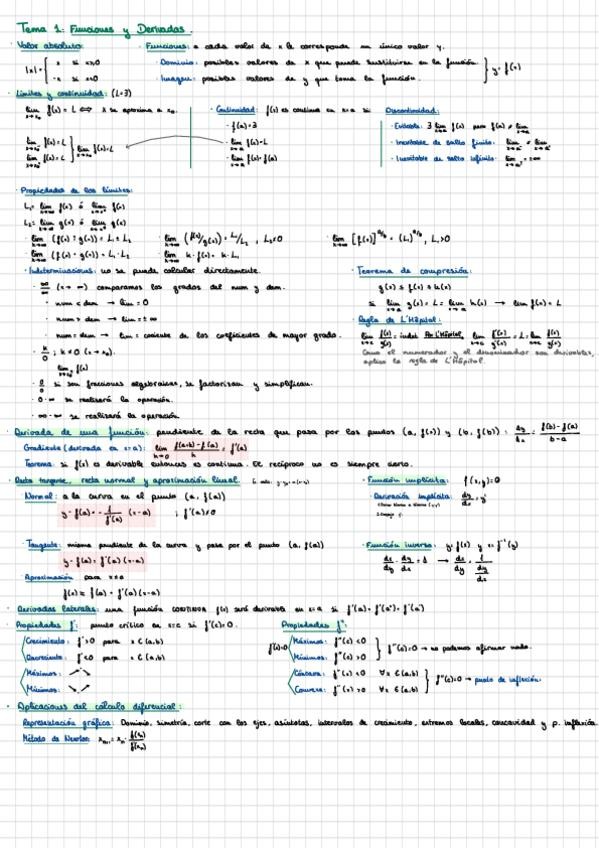 Tema 1: Funciones y Derivadas.
· Valor absoluto:
|x| = { x si x≥0
-x si x<0
· Funciones: a cada valor de x le corresponde un único valor y.
· Dominio: posibles valores de x que puede sustituirse en la función
· Imagen: posibles valores de y que toma la función.
} y = f(x)
· Límites y continuidad: (L=3)
lim x→x₀ f(x) = L ⟺ x se aproxima a x₀.
} lim f(x)=L
· Continuidad: f(x) es continua en x=a si
· f(a)=3
· lim x→a f(x)=L
· lim x→a f(x)=f(a)
Discontinuidad:
· Evitable: 3 lim f(x) para
· Inevitable de salto finito:
· Inevitable de salto infinito: = ±∞
· Propiedades de los límites:
L₁= lim f(x) ó lim f(x)
L₂= lim g(x) ó lim g(x)
· lim (f(x) ± g(x)) = L₁ ± L₂
· lim (f(x) · g(x)) = L₁ · L₂
· lim (f(x)/g(x)) = L₁/L₂ , L₂≠0
· lim k · f(x) = k · L₁
· lim [f(x)]^(a/b) = (L₁)^(a/b), L₁>0
· Indeterminaciones: no se puede calcular directamente.
· ∞/∞ (x → ∞) comparamos los grados del num y dem.
· num < dem → lim = 0
· num > dem → lim = ± ∞
· num = dem → lim = cociente de los coeficientes de mayor grado.
· k/0 ; k ≠ 0 (x → x₀).
lim f(x)
· 0/0 si son fracciones algebraicas, se factorizan y simplifican.
· 0·∞ se realizará la operación.
· ∞-∞ se realizará la operación
· Teorema de compresión:
g(x) ≤ f(x) ≤ h(x)
si lim x→a g(x) = L = lim x→a h(x) → lim f(x) = L
· Regla de L'Hôpital:
lim f(x)/g(x) = indet. Por L'Hôpital, lim f'(x)/g'(x) = L = lim f(x)/g(x)
Como el numerador y el denominador son derivables,
aplico la regla de L'Hôpital.
· Derivada de una función: pendiente de la recta que pasa por los puntos (a, f(x)) y (b, f(b)) : dy/dx = f(b)-f(a)/b-a
Gradiente (derivada en x=a): lim h→0 f(a+h)-f(a)/h = f'(a)
Teorema: si f(x) es derivable entonces es continua. El recíproco no es siempre cierto.
· Recta tangente, recta normal y aproximación lineal
· Normal: a la curva en el punto (a, f(a))
y - f(a) = - 1/f'(a) (x-a) ; f'(a) ≠ 0
· Función implícita: f(x,y)=0
· Derivación implícita: dy/dx = y'
· Tangente: misma pendiente de la curva y pasa por el punto (a, f(a))
y - f(a) = f'(a) (x-a)
· Función inversa: y = f(x) y x = f⁻¹(y)
dx/dy · dy/dx = 1 → dx/dy = 1/(dy/dx)
Aproximación para x≈a
f(x) ≈ f(a) + f'(a)(x-a)
· Derivadas laterales: una función CONTINUA f(x) será derivable en x=a si f'(a)=f'(a⁺)=f'(a⁻)
· Propiedades f': punto crítico en x=c si f'(c)=0.
Crecimiento: f'>0 para x∈(a,b)
Decreciente: f'<0 para x∈(a,b)
Máximos:
Mínimos:
Propiedades f'':
f'(c)=0
Máximos: f''(c) <0
Mínimos: f''(c) >0
} f''(c)=0 → no podemos afirmar nada.
Cóncava: f''(x) <0 ∀x ∈(a,b)
Convexa: f''(x) >0 ∀x ∈(a,b)
} f''(c)=0 → punto de inflexión.
· Aplicaciones del cálculo diferencial:
Representación gráfica: Dominio, simetría, corte con los ejes, asíntotas, intervalos de crecimiento, extremos locales, concavidad y p. inflexión.
Método de Newton: xₙ₊₁ = xₙ - f(xₙ)/f'(xₙ)